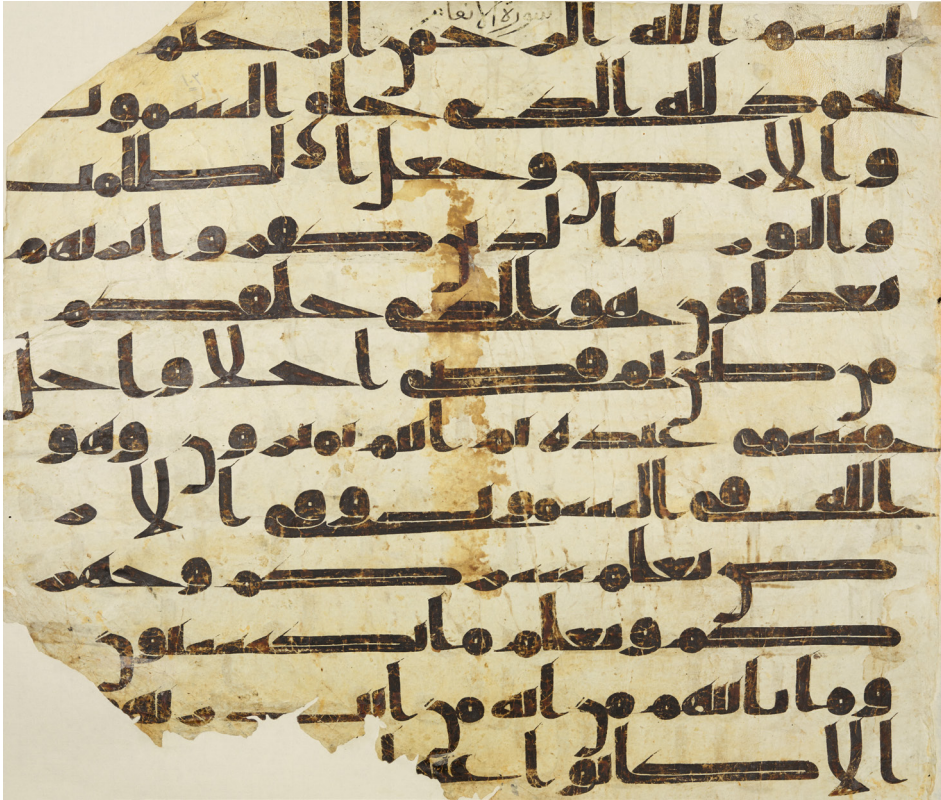 سورة الانعام
بسم الله الرحمن الرحيم
لحمد لله الذى خلق السموت
والارض وجعل الظلمت
والنور ثم الذين كفروا بربهم
يعدلون هو الذى خلقكم
من طين ثم قضى اجلا واجل
مسمى عنده ثم انتم تمترون وهو
الله فى السموت وفى الار
ض يعلم سركم وجهر
كم ويعلم ما تكسبون
وما تاتيهم من اية من ايت ربهم
الا كانوا عنها